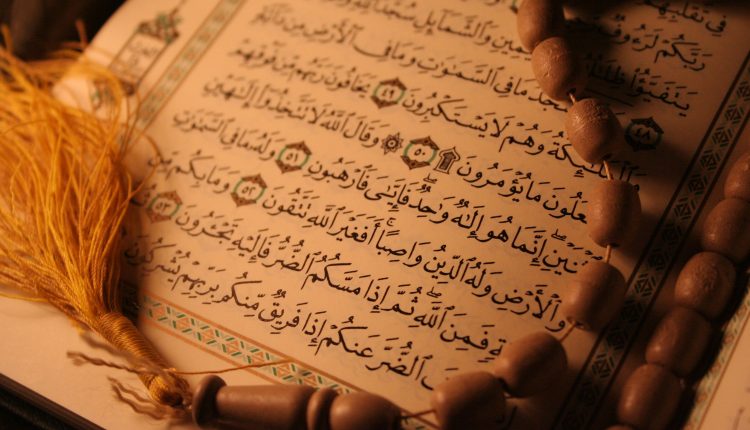 فِى تَقَلُّبِهِمْ
رَبَّكُمْ لَرَءُوفٌ
يَتَفَيَّؤُا۟ ظِلَٰلُهُۥ ٱلْيَمِينِ وَٱلشَّمَآئِلِ سُجَّدًا ٤٨
يَسْجُدُ مَا فِى ٱلسَّمَٰوَٰتِ وَمَا فِى ٱلْأَرْضِ مِن دَآبَّةٍ
وَٱلْمَلَٰٓئِكَةُ وَهُمْ لَا يَسْتَكْبِرُونَ ٤٩ يَخَافُونَ رَبَّهُم مِّن فَوْقِهِمْ
وَيَفْعَلُونَ مَا يُؤْمَرُونَ ۩ ٥٠ ۞ وَقَالَ ٱللَّهُ لَا تَتَّخِذُوٓا۟ إِلَٰهَيْنِ
ٱثْنَيْنِ ۖ إِنَّمَا هُوَ إِلَٰهٌ وَٰحِدٌ ۖ فَإِيَّٰىَ فَٱرْهَبُونِ ٥١ وَلَهُۥ مَا فِى ٱلسَّمَٰوَٰتِ
وَٱلْأَرْضِ وَلَهُ ٱلدِّينُ وَاصِبًا ۚ أَفَغَيْرَ ٱللَّهِ تَتَّقُونَ ٥٢ وَمَا بِكُم مِّن
فَمِنَ ٱللَّهِ ۖ ثُمَّ إِذَا مَسَّكُمُ ٱلضُّرُّ فَإِلَيْهِ تَجْـَٔرُونَ ٥٣
ٱلضُّرَّ عَنكُمْ إِذَا فَرِيقٌ مِّنكُم بِرَبِّهِمْ يُشْرِكُونَ